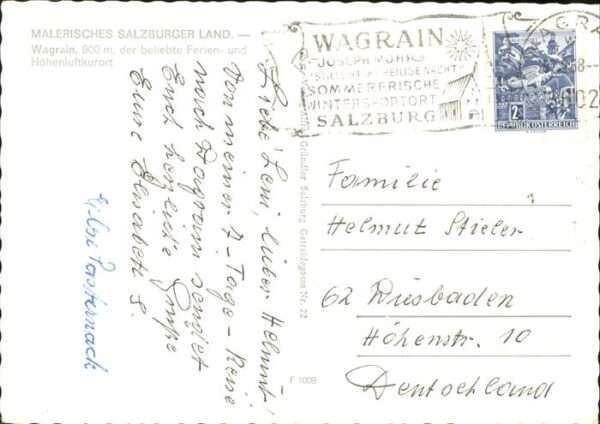 MALERISCHES SALZBURGER LAND. —
Wagrain, 800 m, der beliebte Ferien- und
Höhenluftkurort.
WAGRAIN
JOSEPH MOHR
"STILLE NACHT HEILIGE NACHT"
SOMMERFRISCHE
WINTERSPORTORT
SALZBURG
WAGRA
2
REPUBLIK ÖSTERREICH
Liebe Leni, lieber Helmut,
Von meiner 7-Tage-Reise
nach Wagrain sendet
Euch herzliche Grüße
Eure Elisabeth S.
Pasternack
Gründler Salzburg Getreidegasse Nr. 22
F 1009
Familie
Helmut Stieler
62 Wiesbaden
Höhenstr. 10
Deutschland